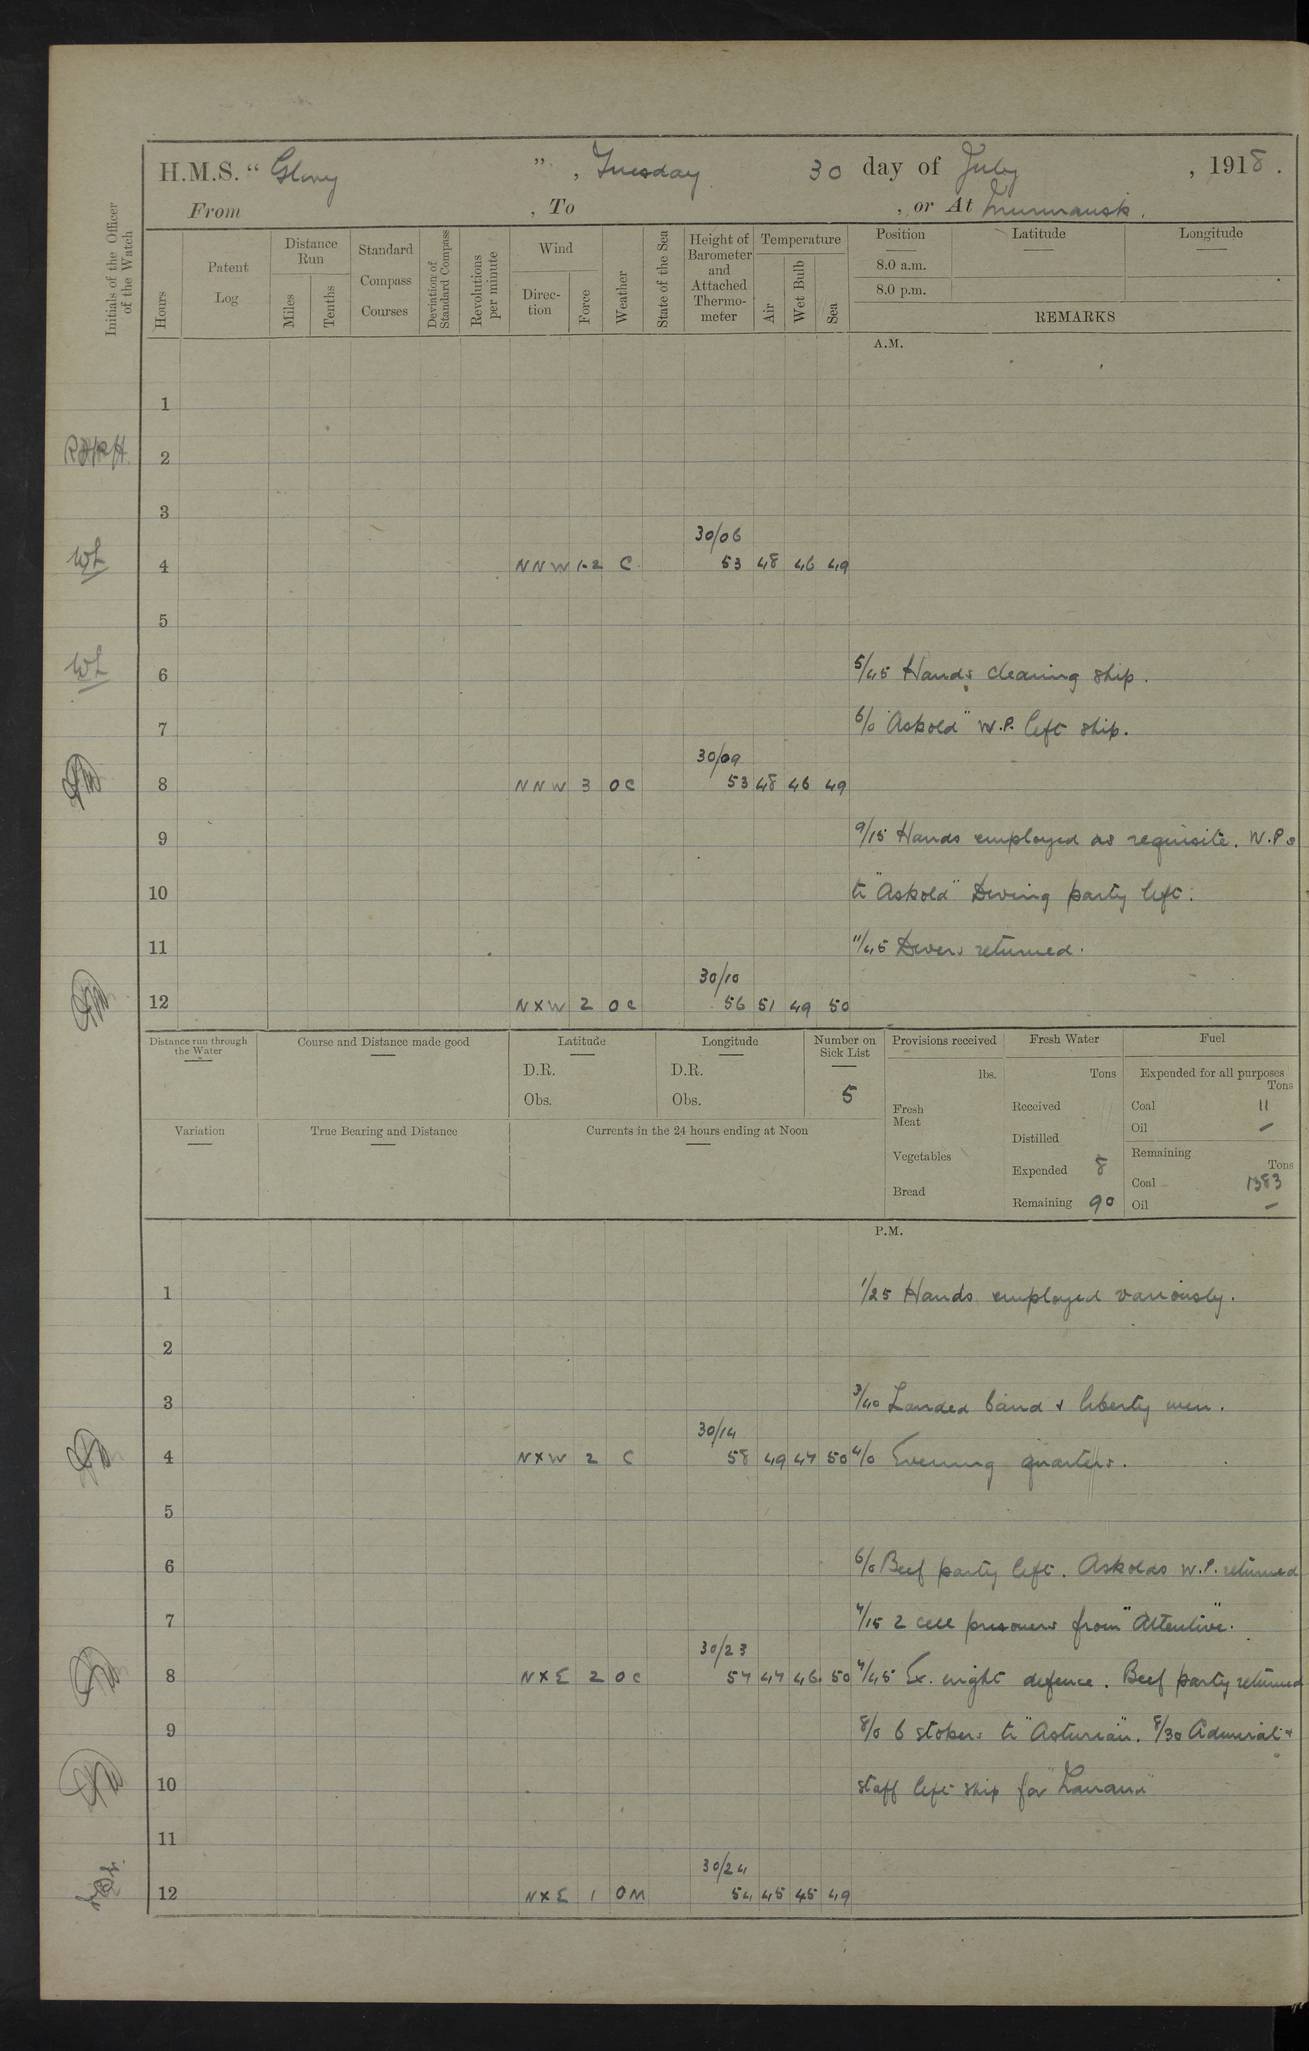 H.M.S. "Glory", Tuesday 30 day of July, 1918.
From , To , or At Murmansk.
Initials of the Officer of the Watch
Hours
Patent Log
Distance Run
Miles
Tenths
Standard Compass Courses
Deviation of Standard Compass
Revolutions per minute
Wind
Direction
Force
Weather
State of the Sea
Height of Barometer and Attached Thermometer
Temperature
Air
Wet Bulb
Sea
Position
Latitude
Longitude
8.0 a.m.
8.0 p.m.
REMARKS
A.M.
1
2
3
30/06
4 NNW 1-2 C 53 48 46 49
5
6 5/45 Hands cleaning ship.
7 6/0 "Askold" W.P. left ship.
30/09
8 NNW 3 OC 53 48 46 49
9 9/15 Hands employed as requisite. W.P.s
10 to "Askold" Diving party left.
11 11/45 Divers returned.
30/10
12 NXW 2 OC 56 51 49 50
Distance run through the Water
Course and Distance made good
Latitude
D.R.
Obs.
Longitude
D.R.
Obs.
Number on Sick List
5
Provisions received
lbs.
Fresh Meat
Vegetables
Bread
Fresh Water
Tons
Received
Distilled
Expended 8
Remaining 90
Fuel
Expended for all purposes
Tons
Coal 11
Oil –
Remaining
Tons
Coal 1383
Oil –
Variation
True Bearing and Distance
Currents in the 24 hours ending at Noon
P.M.
1 1/25 Hands employed variously.
2
3 3/40 Landed band & liberty men.
30/14
4 NXW 2 C 58 49 47 50 4/0 Evening quarters.
5
6 6/0 Beef party left. Askolds W.P. returned
7 7/15 2 cell prisoners from "Attentive".
30/23
8 NXE 2 OC 57 47 46 50 7/45 Ex. night defence. Beef party returned
9 8/0 6 stokers to "Asturian". 8/30 Admiral &
10 staff left ship for
11
30/24
12 NXE 1 OM 54 45 45 49